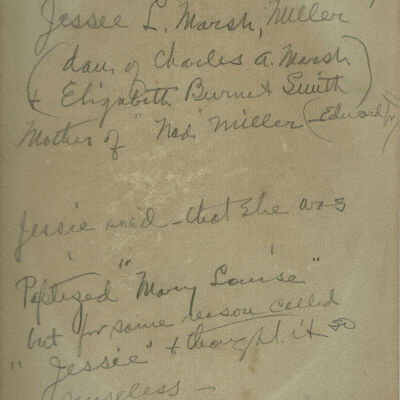 Jessee L. Marsh, Miller
(dau. of Charles A. Marsh
+ Elizabeth Burnet Smith)
Mother of "Ned" Miller (Edward Jr)
Jessie said - that she was
Paptized "Mary Louise"
but for some reason called
"Jessie" + thought it so
senseless -